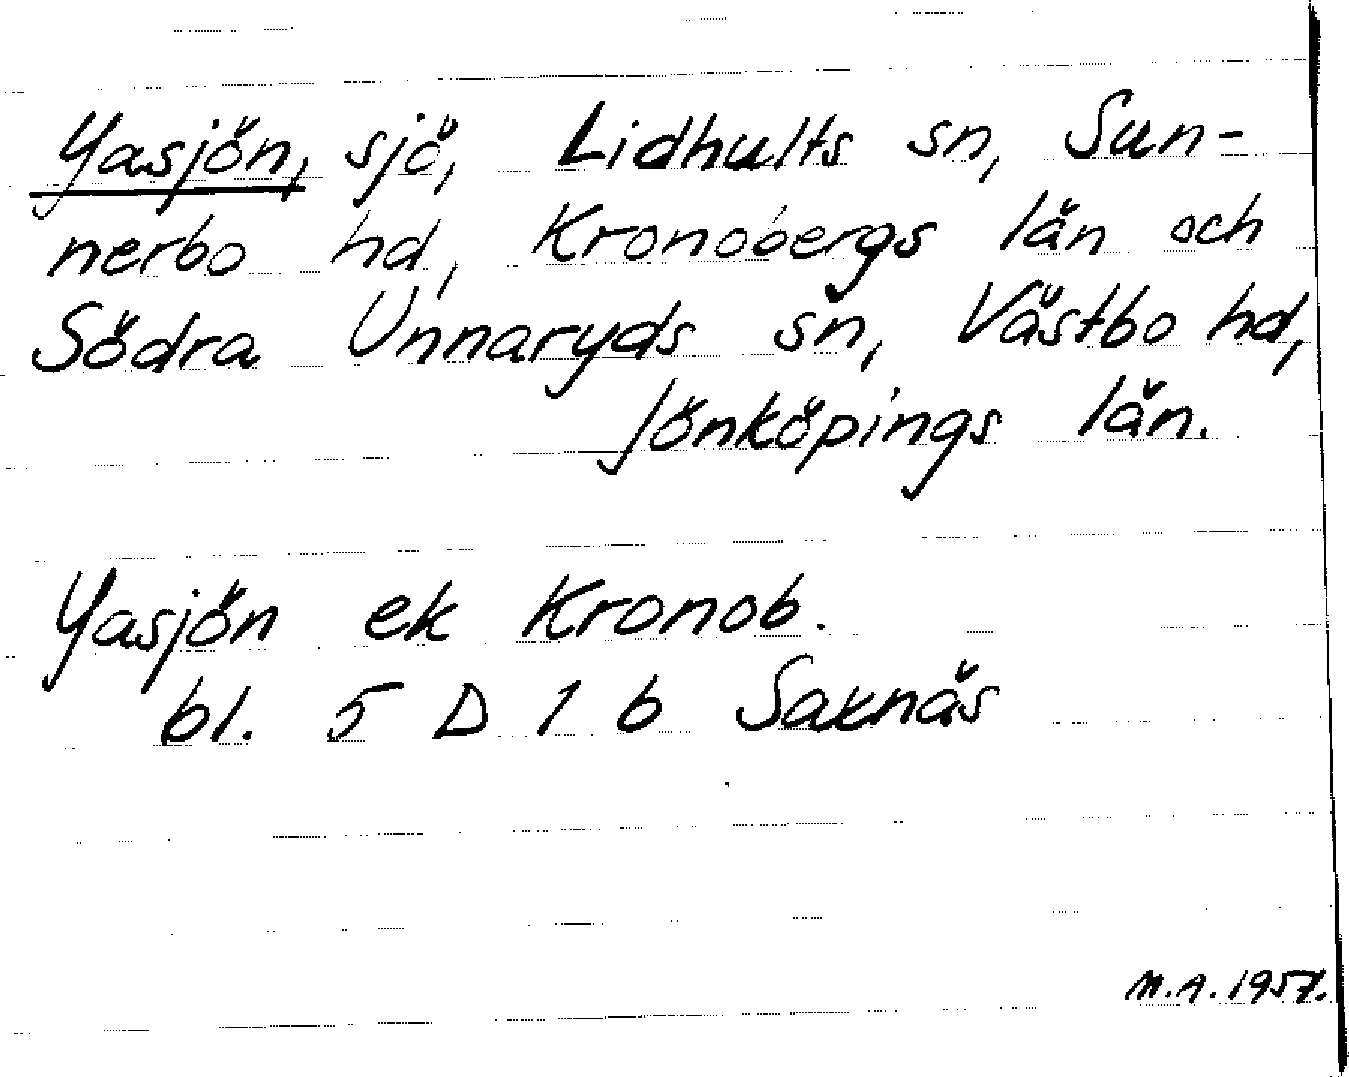 Yasjön, sjö, Lidhults sn, Sun-
nerbo hd, Kronobergs län och
Södra Unnaryds sn, Västbo hd,
Jönköpings län.
Yasjön ek Kronob.
bl. 5 D 1 b Saxnäs
M.A. 1957.